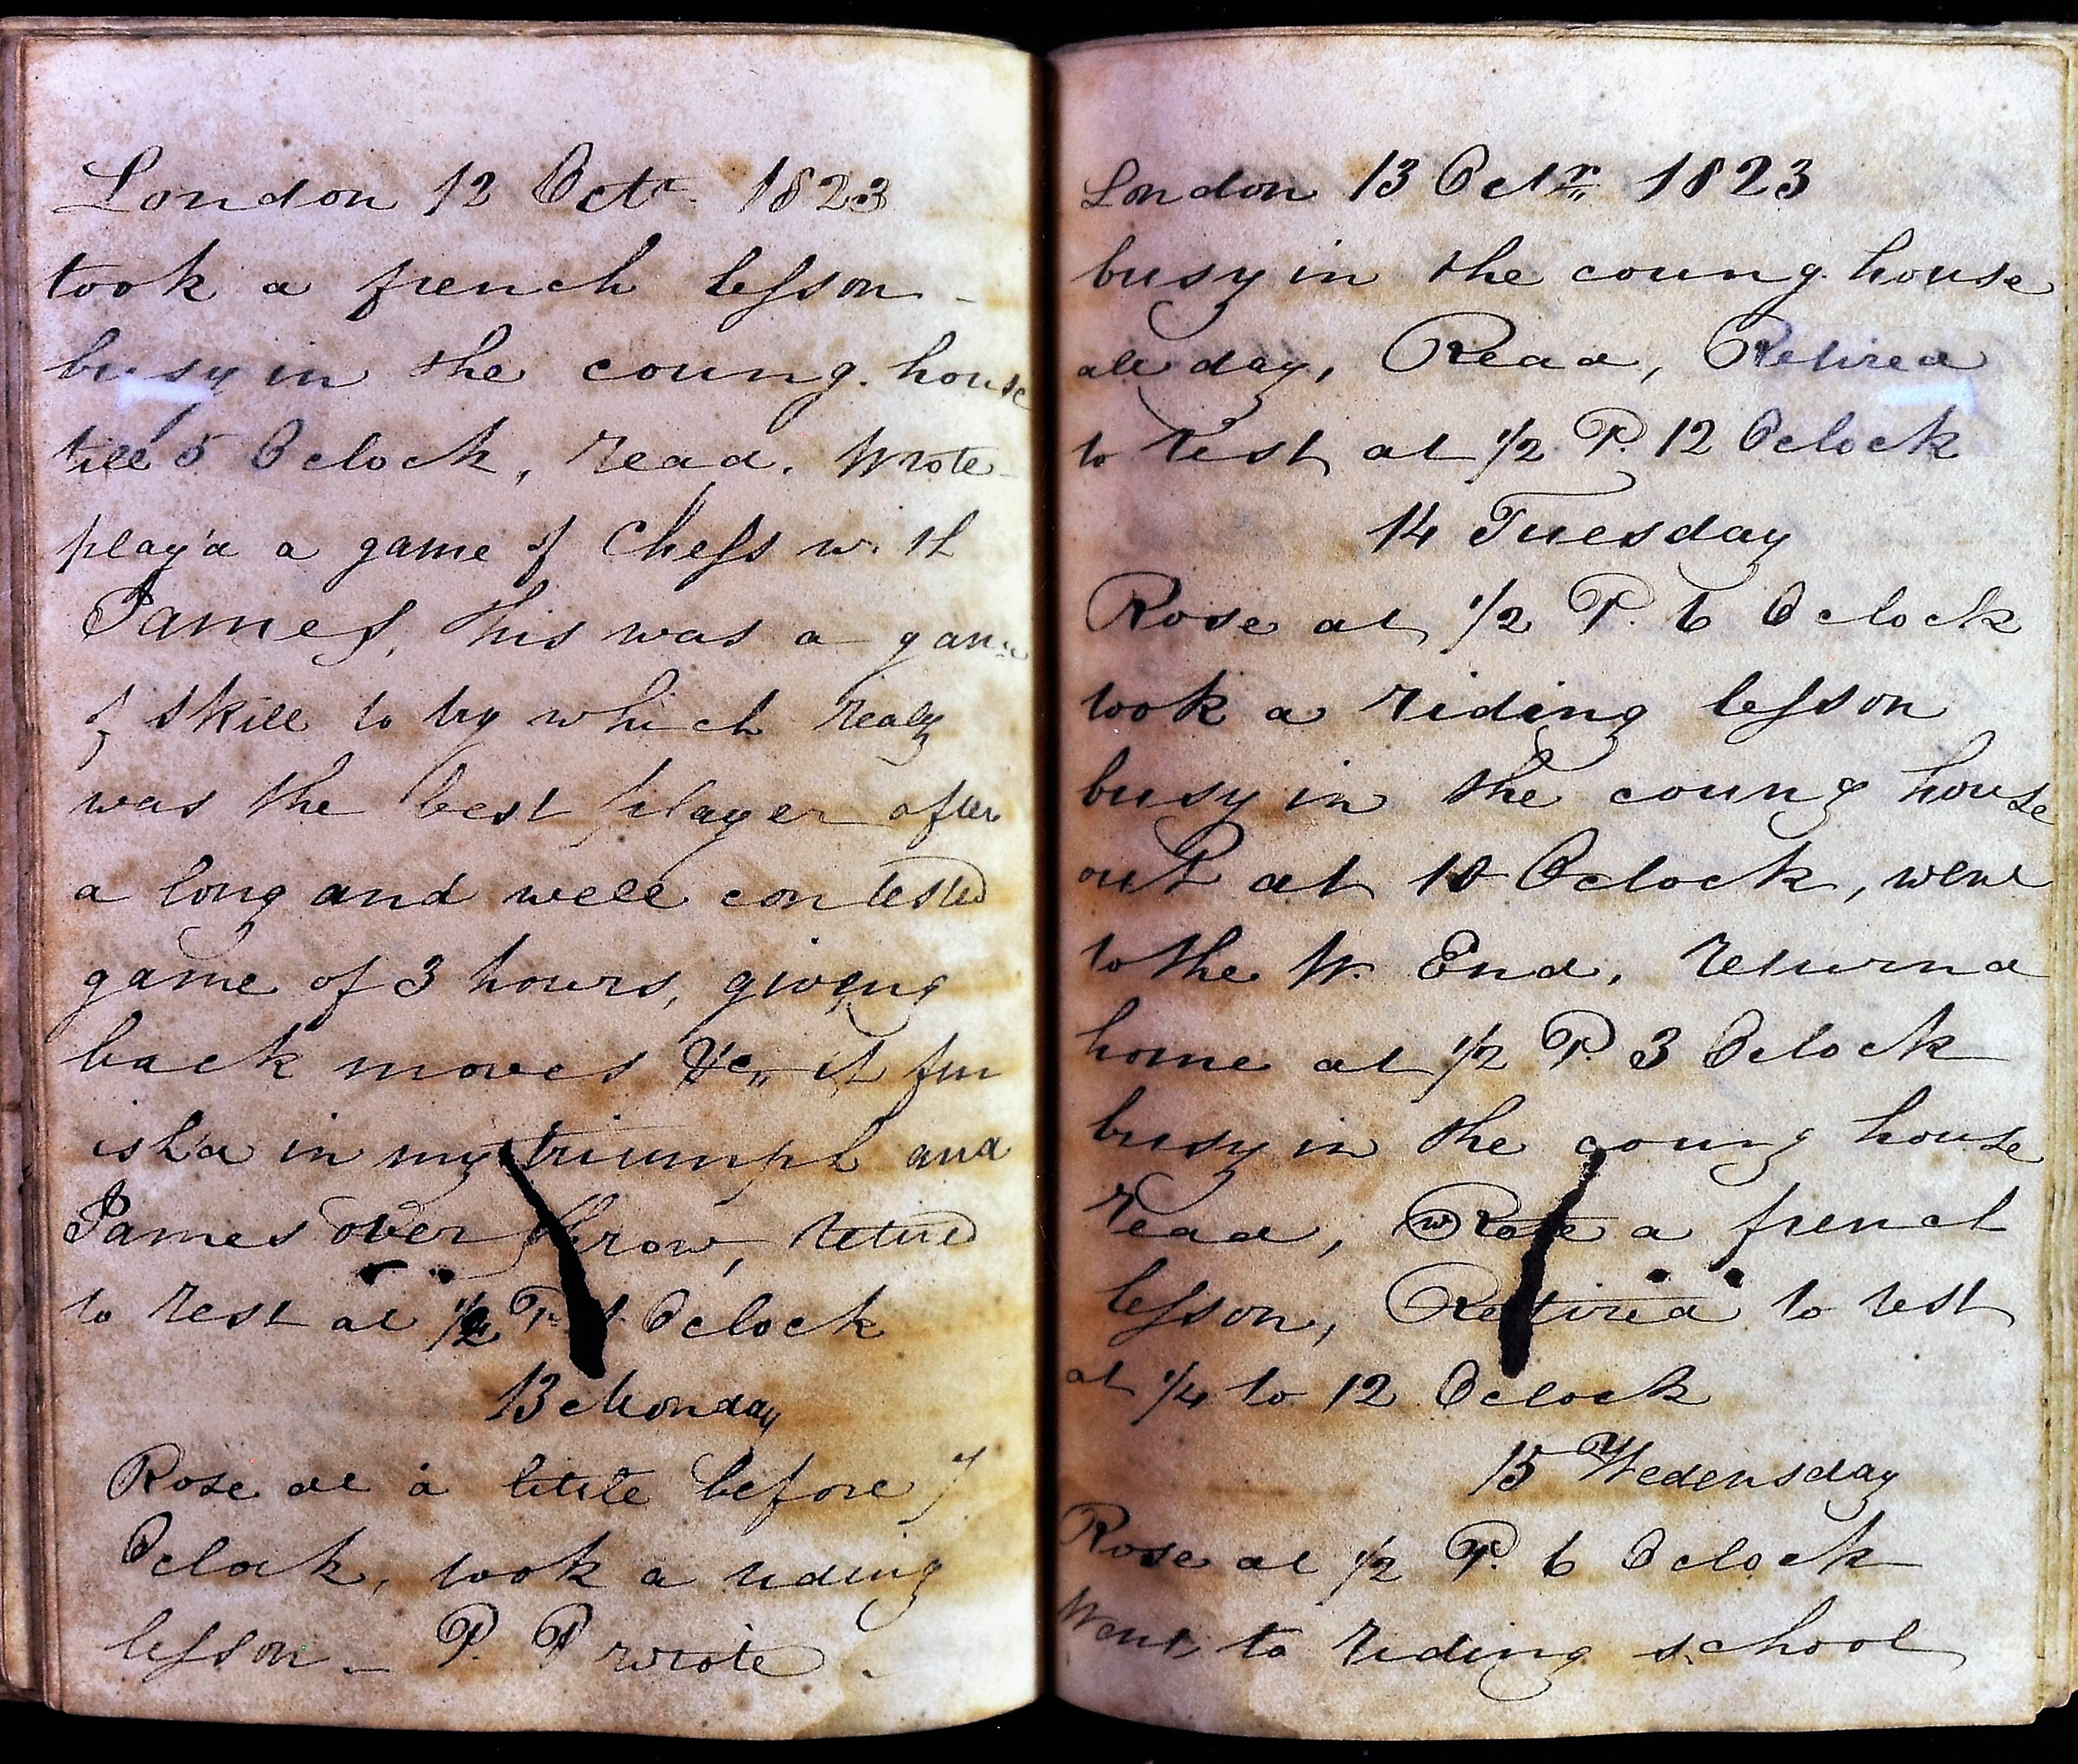 London 12 Octr 1823
took a french lesson -
busy in the coung. house
till 5 Oclock, read. Wrote -
play'd a game of Chess with
James, this was a game
of skill to try which realy
was the best player after
a long and well contested
game of 3 hours, giveng
back moves &c,, it fin
ish'd in my triumph and
James over throw, retired
to rest at 1/2 P. 1. Oclock
13 Monday
Rose at a little before 7
Oclock, took a riding
lesson - P. P wrote -
London 13 Octr,, 1823
busy in the coung. house
all day, Read, Retired
to rest at 1/2 P. 12 Oclock
14 Tuesday
Rose at 1/2 P. 6 Oclock
took a riding lesson
busy in the coung house
out at 10 Oclock, went
to the W. End, returnd
home at 1/2 P. 3 Oclock
busy in the coung house
read, wRote a french
lesson, Retired to rest
at 1/4 to 12 Oclock
15 Wedensday
Rose at 1/2 P. 6 Oclock
Went to riding school